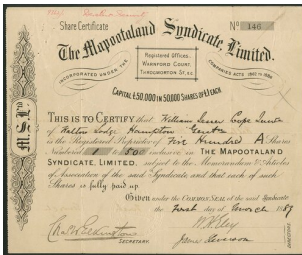 Share Certificate
Nº 146
The Mapootaland Syndicate, Limited.
INCORPORATED UNDER THE
Registered Offices,
WARNFORD COURT,
THROGMORTON ST, E.C.
COMPANIES ACTS 1862 TO 1886
CAPITAL £50,000 IN 50,000 SHARES OF £1 EACH
M.S.Ltd
THIS IS TO CERTIFY that William
of Hampton
is the Registered Proprietor of Five Hundred A Shares
Numbered 1 to 500 inclusive in THE MAPOOTALAND
SYNDICATE, LIMITED, subject to the Memorandum & Articles
of Association of the said Syndicate and that each of such
Shares is fully paid up
Given under the COMMON SEAL of the said Syndicate
the First day of March 1889
SECRETARY.
James